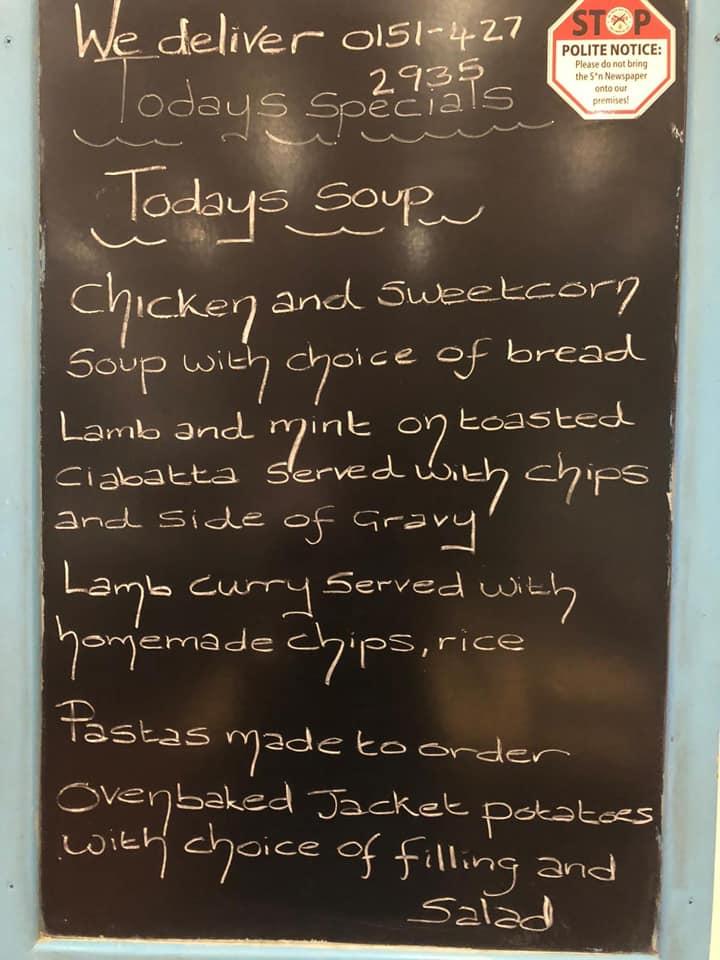 We deliver 0151-427
2935
Todays specials
Todays soup
Chicken and sweetcorn
Soup with choice of bread
Lamb and mint on toasted
Ciabatta served with chips
and side of Gravy
Lamb curry served with
homemade chips, rice
Pastas made to order
Ovenbaked Jacket potatoes
with choice of filling and
Salad
STOP
POLITE NOTICE:
Please do not bring
the S*n Newspaper
onto our
premises!